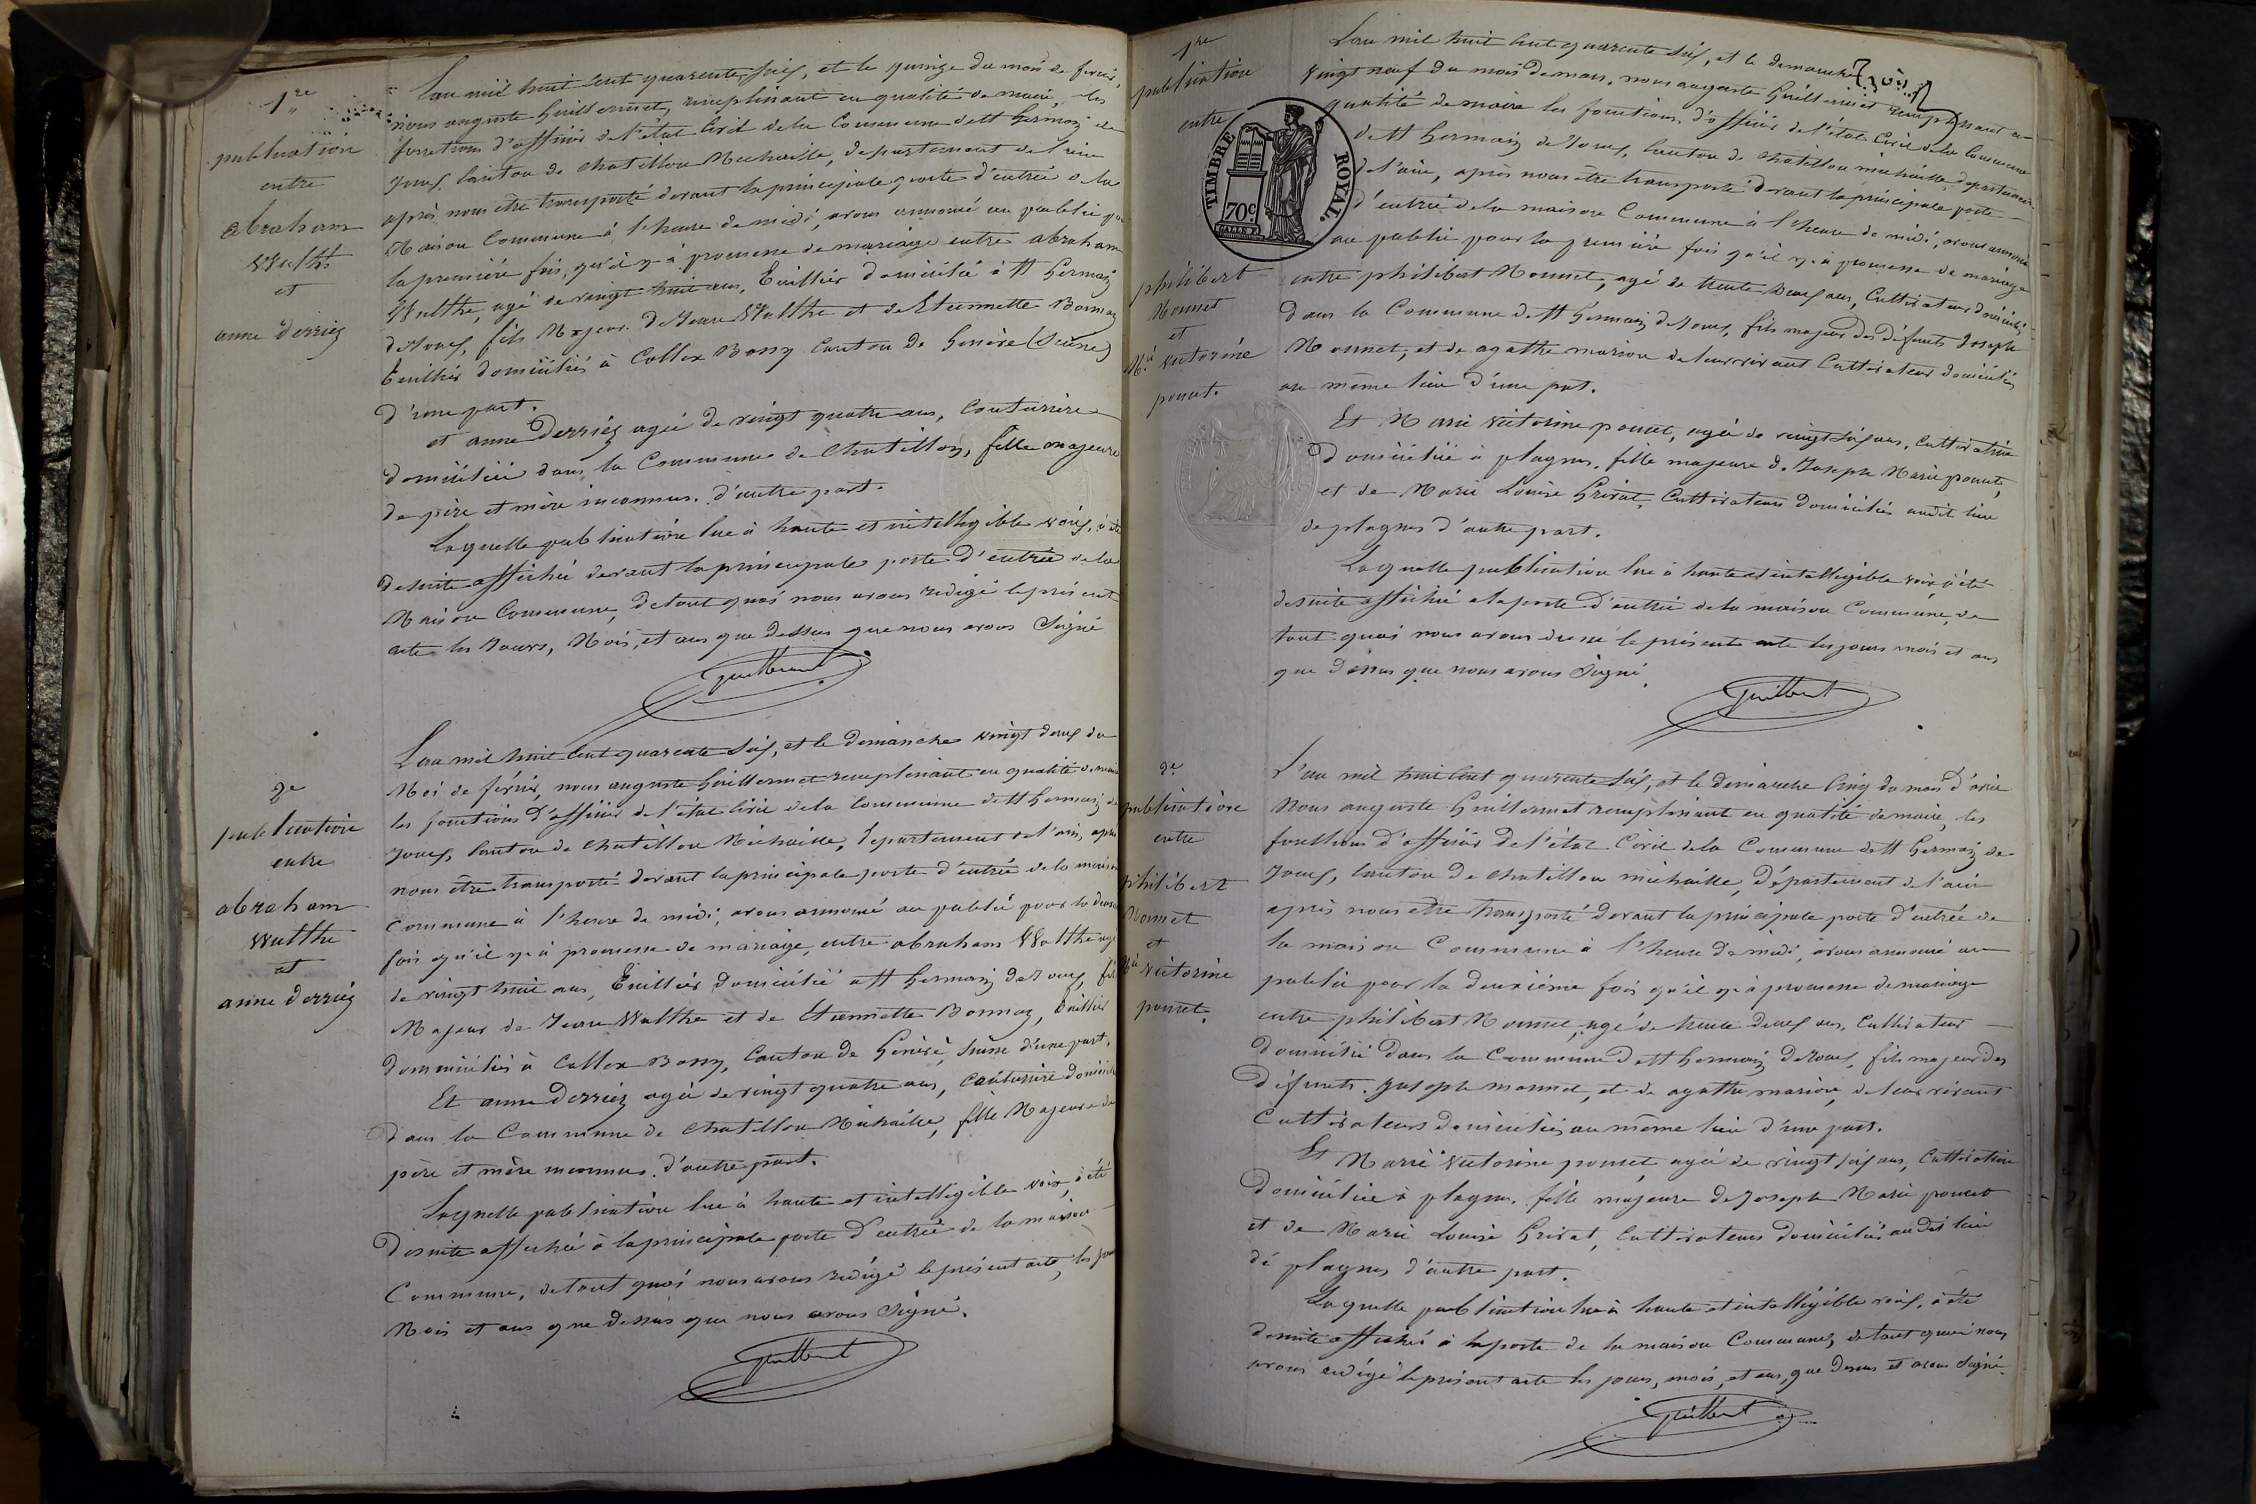 1re
publication
entre
abraham
Walthe
et
anne Derriez
L'an mil huit cent quarante six, et le quinze du mois de fevrier,
nous auguste Guillermet, remplissant en qualité de maire, les
fonctions d'officier de l'état Civil de la Commune de St Germain de
Joux, Canton de Chatillon Michaille, département de l'ain
après nous être transporté devant la principale porte d'entrée de la
Maison Commune à l'heure de midi, avons annoncé au public pour
la première fois, qu'il y a promesse de mariage entre abraham
Walthe, agé de vingt huit ans, Tuillier domicilié à St Germain
de Joux, fils Majeur de Jean Walthe et de Etiennette Bonnaz
Tuilliers domiciliés à Collex Bossy Canton de Genève (Suisse)
d'une part.
et anne Derriez agée de vingt quatre ans, Couturière
domiciliée dans la Commune de Chatillon, fille majeure
de père et mère inconnus. d'autre part.
Laquelle publication lue à haute et intelligible voix, a été
de suite affiché devant la principale porte d'entrée de la
Maison Commune, de tout quoi nous avons rédigé le présent
acte les Jours, Mois, et ans que dessus que nous avons Signé
2e
publication
entre
abraham
Walthe
et
anne Derriez
L'an mil huit cent quarante six, et le dimanche vingt deux du
Moi de février, nous auguste Guillermet remplissant en qualité de maire
les fonctions d'officier de l'état Civil de la Commune de St Germain de
Joux, Canton de Chatillon Michaille, département de l'ain, après
nous être transporté devant la principale porte d'entrée de la maison
Commune à l'heure de midi, avons annoncé au public pour la deuxième
fois qu'il y a promesse de mariage, entre abraham Walthe agé
de vingt huit ans, Tuillier domicilié a St Germain de Joux, fils
Majeur de Jean Walthe et de Etiennette Bonnaz, Tuilliers
domiciliés à Collex Bossy, Canton de Génève, Suisse d'une part,
Et anne Derriez agée de vingt quatre ans, Couturière domiciliée
dans la Commune de Chatillon Michaille, fille Majeure de
père et mère inconnus. d'autre part.
Laquelle publication lue à haute et intelligible voix, a été
de suite affiché à la principale porte d'entrée de la maison
Commune, de tout quoi nous avons rédigé le présent acte, les jours
Mois et ans que dessus que nous avons Signé.
1re
publication
entre
philibert
Monnet
et
Mie victorine
poncet.
TIMBRE ROYAL.
70c
L'an mil huit cent quarante six, et le dimanche
vingt neuf du mois de mars, nous auguste Guillermet remplissant en
qualité de maire les fonctions d'officier de l'état Civil de la Commune
de St Germain de Joux, Canton de Chatillon michaille, département
de l'ain, après nous être transporté devant la principale porte
d'entrée de la maison Commune à l'heure de midi, avons annoncé
au public pour la première fois qu'il y a promesse de mariage
entre philibert Monnet, agé de trente deux ans, Cultivateur domicilié
dans la Commune de St Germain de Joux, fils majeur des défunts Joseph
Monnet, et de agathe marion de leur vivant Cultivateurs domiciliés
au même lieu d'une part.
Et Marie victorine poncet, agée de vingt six ans, Cultivatrice
domiciliée à plagnes, fille majeure de Joseph Marie poncet,
et de Marie Louise Grivat, Cultivateurs domiciliés audit lieu
de plagnes d'autre part.
Laquelle publication lue à haute et intelligible voix, a été
de suite affiché a la porte d'entrée de la maison Commune, de
tout quoi nous avons dressé le présent acte les jours mois et ans
que dessus que nous avons Signé
2e
publication
entre
philibert
Monnet
et
Mie victorine
poncet.
L'an mil huit cent quarante six, et le dimanche Cinq du mois d'avril
Nous auguste Guillermet remplissant en qualité de maire, les
fonctions d'officier de l'état Civil de la Commune de St Germain de
Joux, Canton de Chatillon michaille, département de l'ain
après nous être transporté devant la principale porte d'entrée de
la maison Commune à l'heure de midi, avons annoncé au
public pour la deuxième fois qu'il y a promesse de mariage
entre philibert Monnet, agé de trente deux ans, Cultivateur
domicilié dans la Commune de St Germain de Joux, fils majeur des
défunts. Joseph monnet, et de agathe marion, de leur vivant
Cultivateurs domiciliés au même lieu d'une part.
Et Marie victorine poncet, agée de vingt six ans, Cultivatrice
domiciliée à plagnes. fille majeure de Joseph Marie poncet
et de Marie Louise Grivat, Cultivateurs domiciliés audit lieu
de plagnes d'autre part.
Laquelle publication lue à haute et intelligible voix, a été
de suite affichée à la porte de la maison Commune, de tout quoi nous
avons rédigé le présent acte les jours, mois, et ans, que dessus et avons Signé.